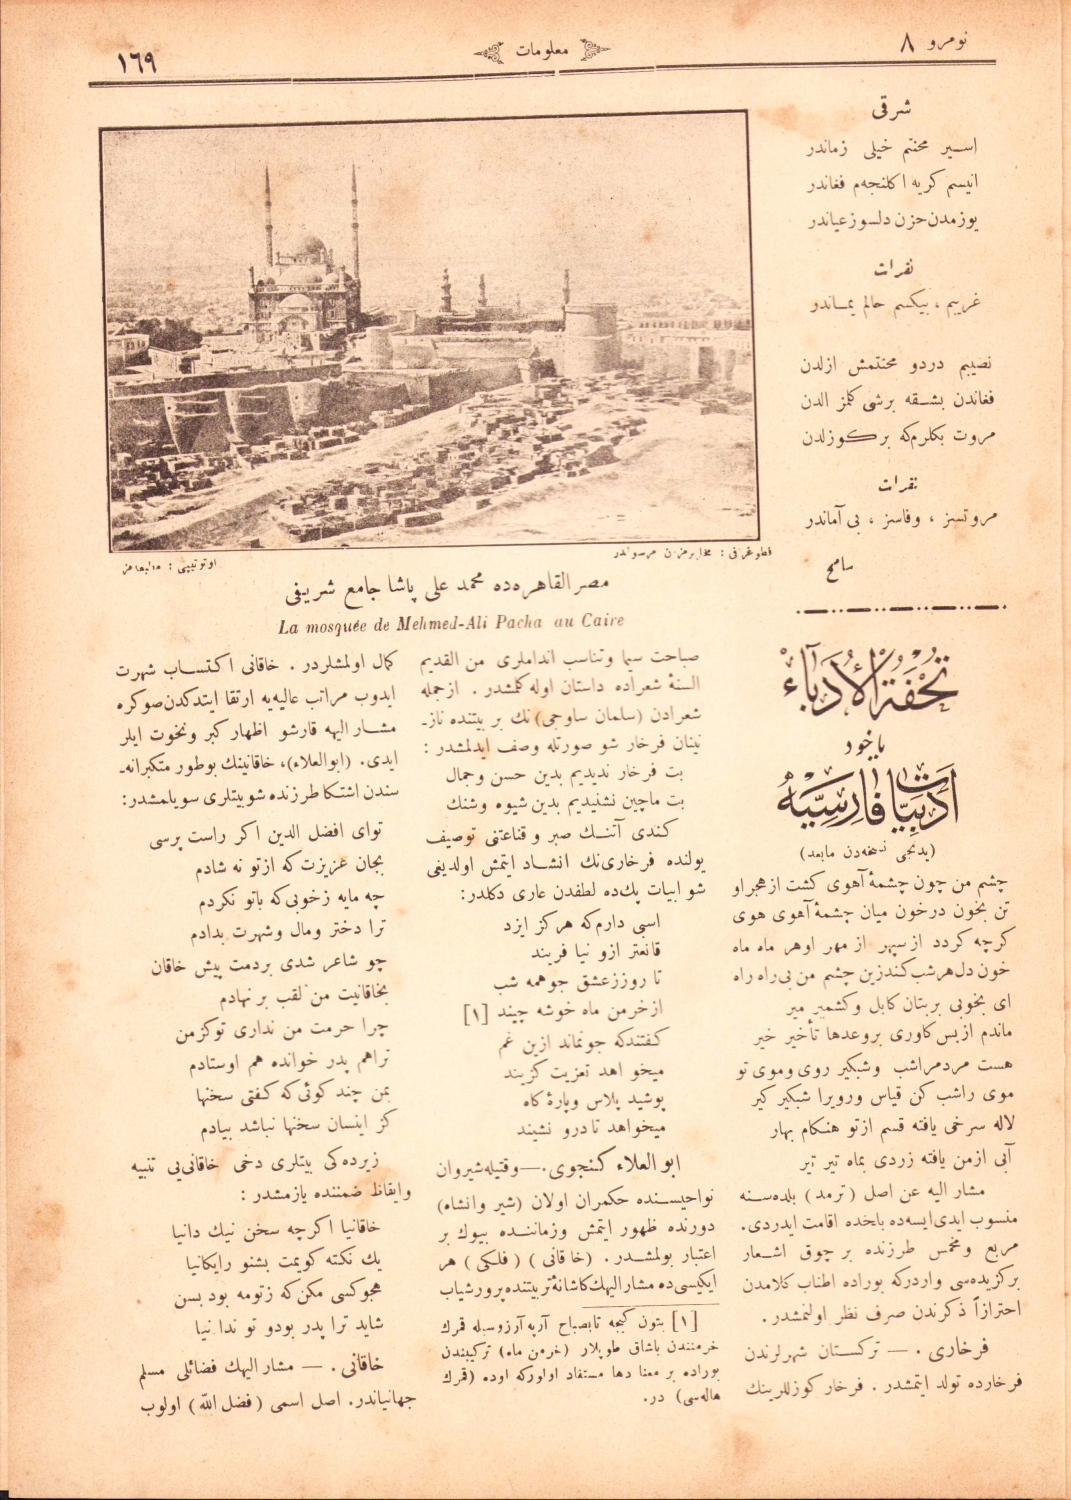 نومرو ٨
معلومات
١٦٩
شرقی
اسیر محنتم خیلی زماندر
انیسم کریه اکلنجه‌م فغاندر
یوزمدن حزن دلسوز عیاندر
نقرات
غریبم ، بیکسم حالم یماندر
نصیبم دردو محنتمش ازلدن
فغاندن بشقه برشی کلمز الدن
مروت بکلرم‌که بر کوزلدن
نقرات
مروتسز ، وفاسز ، بی آماندر
سامح
تُحْفَةُ الْأُدَبَاءْ
یاخود
اَدَبِیَّاتِ فَارِسِیَّهْ
(یدنجی نسخه‌دن مابعد)
چشم من چون چشمهٔ آهوی کشت از هجر او
تن بخون درخون میان چشمهٔ آهوی هوی
کرچه کردد از سپهر از مهر اوهر ماه ماه
خون دل هرشب کندزین چشم من بی‌راه راه
ای بخوبی بر بتان کابل وکشمیر میر
ماندم ازبس کاوری بروعدها تأخیر خیر
هست مردم‌راشب وشبکیر روی وموی تو
موی راشب کن قیاس ورویرا شبکیر کیر
لاله سرخی یافته قسم ازتو هنکام بهار
آبی ازمن یافته زردی بماه تیر تیر
مشار الیه عن اصل (ترمد) بلده‌سنه
منسوب ایدی‌ایسه‌ده باخده اقامت ایدردی.
مربع ومخمس طرزنده بر چوق اشعار
برکزیده‌سی واردرکه بوراده اطناب کلامدن
احترازاً ذکرندن صرف نظر اولنمشدر .
فرخاری . — ترکستان شهرلرندن
فرخارده تولد ایتمشدر . فرخار کوزللرینك
فطوغرافی : مخابرمزدن مرسولدر
اوتوتیپی :
مصر القاهره‌ده محمد علی پاشا جامع شریفی
La mosquée de Mehmed-Ali Pacha au Caire
صباحت سیما وتناسب انداملری من القدیم
السنهٔ شعراده داستان اوله کلمشدر . ازجمله
شعرادن (سلمان ساوجی) نك بر بیتنده ناز-
نینان فرخار شو صورتله وصف ایدلمشدر :
بت فرخار ندیدیم بدین حسن وجمال
بت ماچین نشنیدیم بدین شیوه وشنك
کندی آتنك صبر و قناعتنی توصیف
یولنده فرخاری‌نك انشاد ایتمش اولدیغی
شو ابیات پك‌ده لطفدن عاری دکلدر:
اسبی دارم‌که هرکز ایزد
قانعتر ازو نیا فریند
تا روززعشق جوهمه شب
ازخرمن ماه خوشه چیند [١]
کفتندکه جونماند ازین غم
میخو اهد تعزیت کزیند
پوشید پلاس وپارهٔ کاه
میخواهد تادرو نشیند
ابو العلاء کنجوی.—وقتیله شیروان
نواحیسنده حکمران اولان (شیر وانشاه)
دورنده ظهور ایتمش وزماننده بیوك بر
اعتبار بولمشدر . (خاقانی) (فلکی) هر
ایکیسی‌ده مشارالیهك کاشانهٔ تربیتنده پرورشیاب
[١] بتون کیجه تابصباح آرپه آرزوسیله قمرك
خرمنندن باشاق طوپلار (خرمن ماه) ترکیبندن
بوراده بر معنا دها مستفاد اولورکه اوده (قمرك
هاله‌سی) در.
کمال اولمشلردر . خاقانی اکتساب شهرت
ایدوب مراتب عالیه‌یه ارتقا ایتدکدن صوکره
مشار الیهه قارشو اظهار کبر ونخوت ایلر
ایدی. (ابوالعلاء)، خاقانینك بوطور متکبرانه-
سندن اشتکا طرزنده شوبیتلری سویلمشدر:
توای افضل الدین اکر راست پرسی
بجان عزیزت که ازتو نه شادم
چه مایه زخوبی‌که باتو نکردم
ترا دختر ومال وشهرت بدادم
چو شاعر شدی بردمت پیش خاقان
بخاقانیت من لقب بر نهادم
چرا حرمت من نداری توکزمن
تراهم پدر خوانده هم اوستادم
بمن چند کوئی‌که کفتی سخنها
کز اینسان سخنها نباشد بیادم
زیرده‌کی بیتلری دخی خاقانی‌یی تنبیه
وایقاظ ضمننده یازمشدر :
خاقانیا اکرچه سخن نیك دانیا
یك نکته کویمت بشنو رایکانیا
هجوکسی مکن‌که زتومه بود بسن
شاید ترا پدر بودو تو ندا نیا
خاقانی . — مشار الیهك فضائلی مسلم
جهانیاندر. اصل اسمی (فضل الله) اولوب